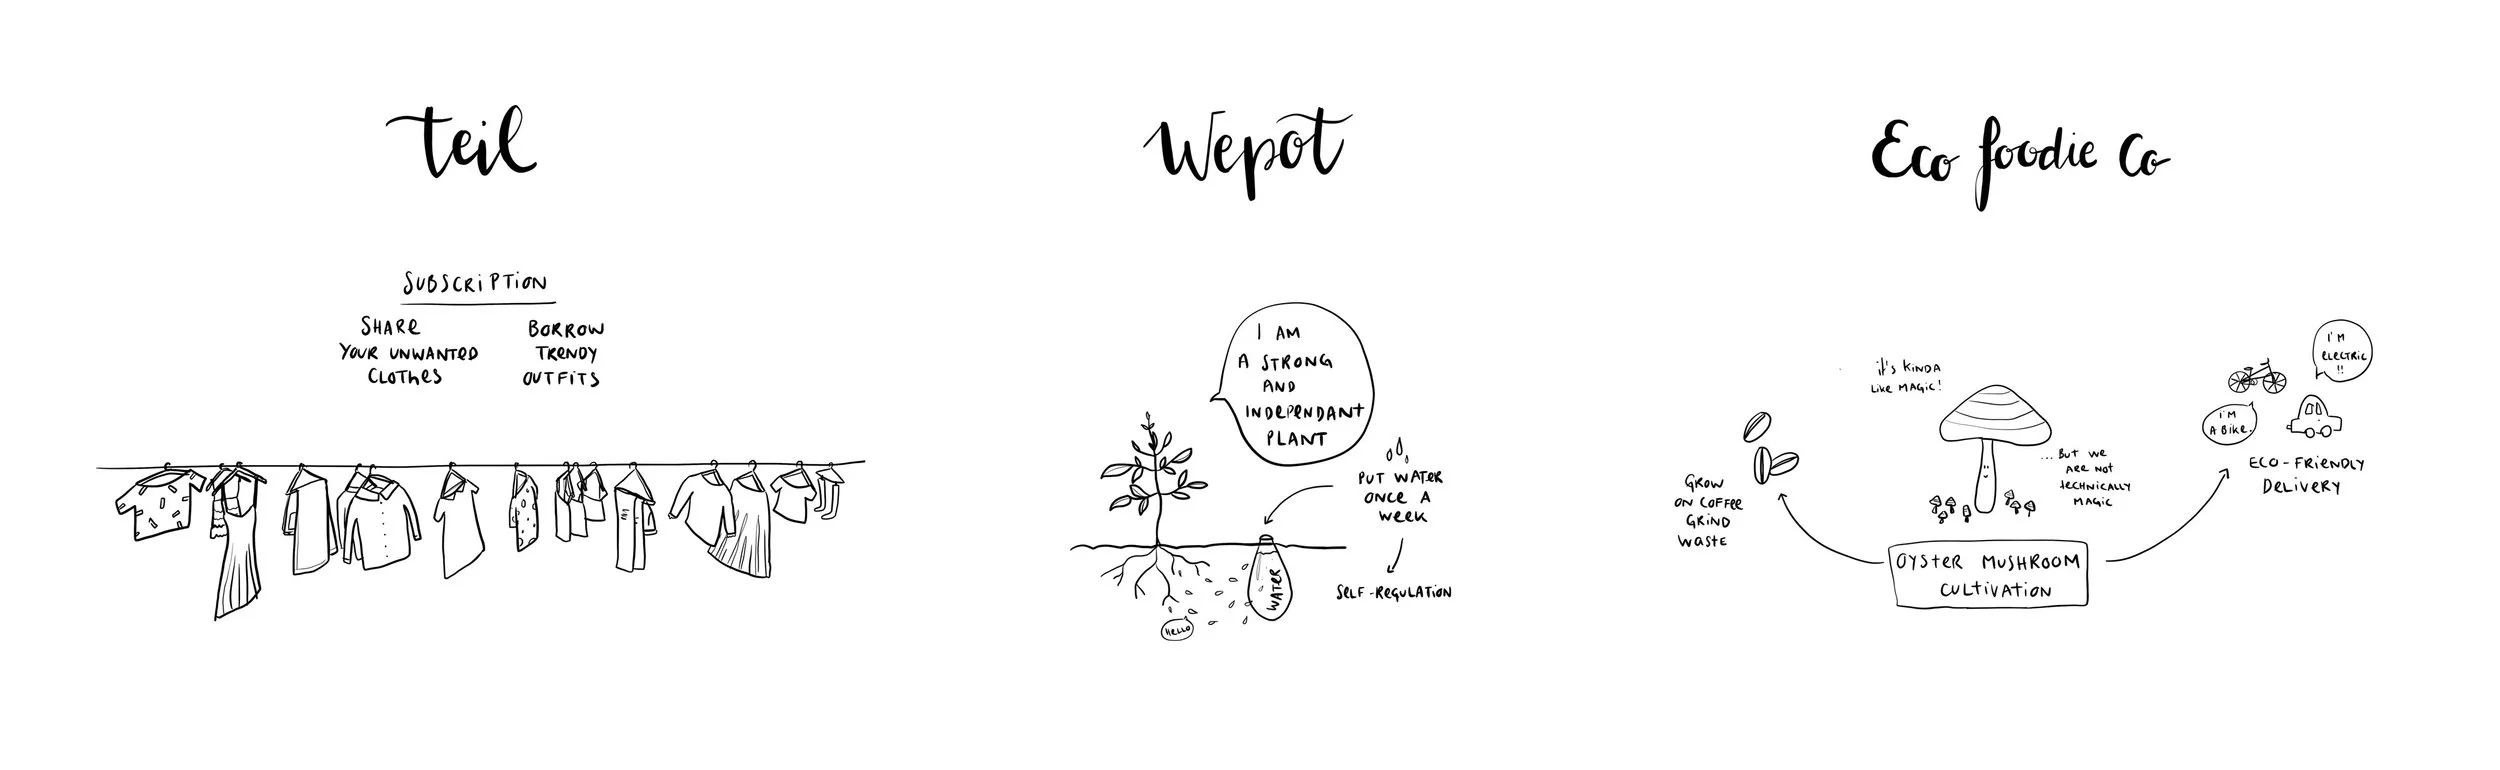 teil
SUBSCRiPTiON
SHARe
YOUR UNWANTeD
CLOTHeS
BORROW
TReNDY
OUTFiTS
Wepot
I AM
A STRONG
AND
INDePeNDANT
PLANT
PUT WATeR
ONCe A
Week
SeLF-ReGULATiON
WATeR
HeLLO
Eco foodie Co
iT'S KiNDA
Like MAGiC!
...BUT We
ARe NOT
TeCHNiCALLY
MAGiC
GROW
ON COFFee
GRiND
WASTe
OYSTeR MUSHROOM
CULTiVATiON
I'M
eLeCTRiC
!!
I'M
A BiKe.
eCO-FRieNDLY
DeLiVeRY